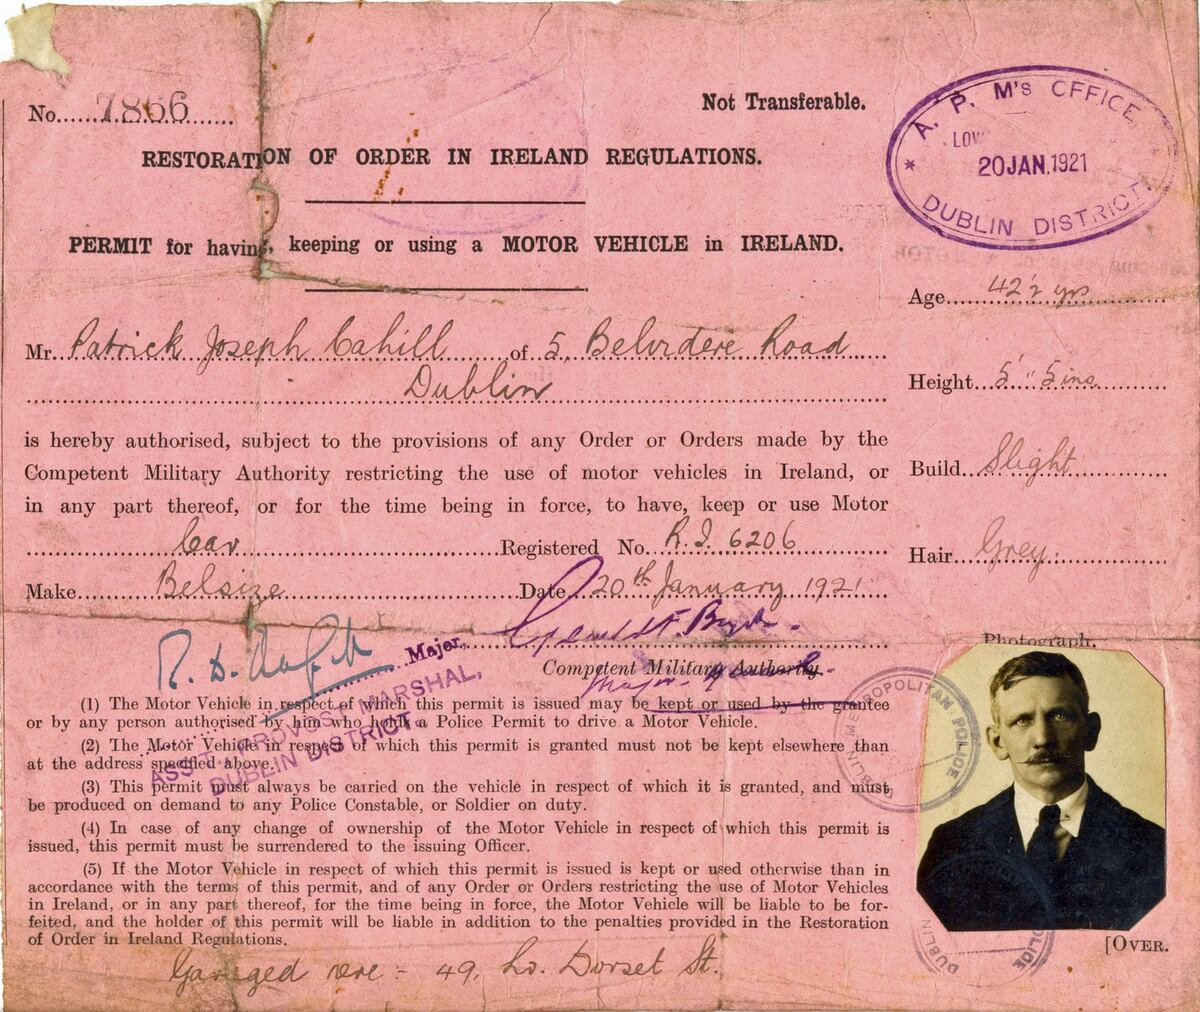 No. 7866
Not Transferable.
RESTORATION OF ORDER IN IRELAND REGULATIONS.
A. P. M's OFFICE,
LOW
20 JAN. 1921
DUBLIN DISTRICT.
PERMIT for having, keeping or using a MOTOR VEHICLE in IRELAND.
Mr. Patrick Joseph Cahill of 5, Belvidere Road
Dublin
is hereby authorised, subject to the provisions of any Order or Orders made by the
Competent Military Authority restricting the use of motor vehicles in Ireland, or
in any part thereof, or for the time being in force, to have, keep or use Motor
Car Registered No. R.I. 6206
Make Belsize Date 20th January 1921
Age 42½ yrs
Height 5' " 5 ins.
Build Slight
Hair Grey.
Photograph.
R. D. Major,
Competent Military Authority.
Major.
ASST. PROVOST MARSHAL,
DUBLIN DISTRICT.
(1) The Motor Vehicle in respect of which this permit is issued may be kept or used by the grantee
or by any person authorised by him who holds a Police Permit to drive a Motor Vehicle.
(2) The Motor Vehicle in respect of which this permit is granted must not be kept elsewhere than
at the address specified above.
(3) This permit must always be carried on the vehicle in respect of which it is granted, and must
be produced on demand to any Police Constable, or Soldier on duty.
(4) In case of any change of ownership of the Motor Vehicle in respect of which this permit is
issued, this permit must be surrendered to the issuing Officer.
(5) If the Motor Vehicle in respect of which this permit is issued is kept or used otherwise than in
accordance with the terms of this permit, and of any Order or Orders restricting the use of Motor Vehicles
in Ireland, or in any part thereof, for the time being in force, the Motor Vehicle will be liable to be for-
feited, and the holder of this permit will be liable in addition to the penalties provided in the Restoration
of Order in Ireland Regulations.
DUBLIN METROPOLITAN POLICE
DUBLIN POLICE
[OVER.
Garaged rere :- 49, Lr. Dorset St.